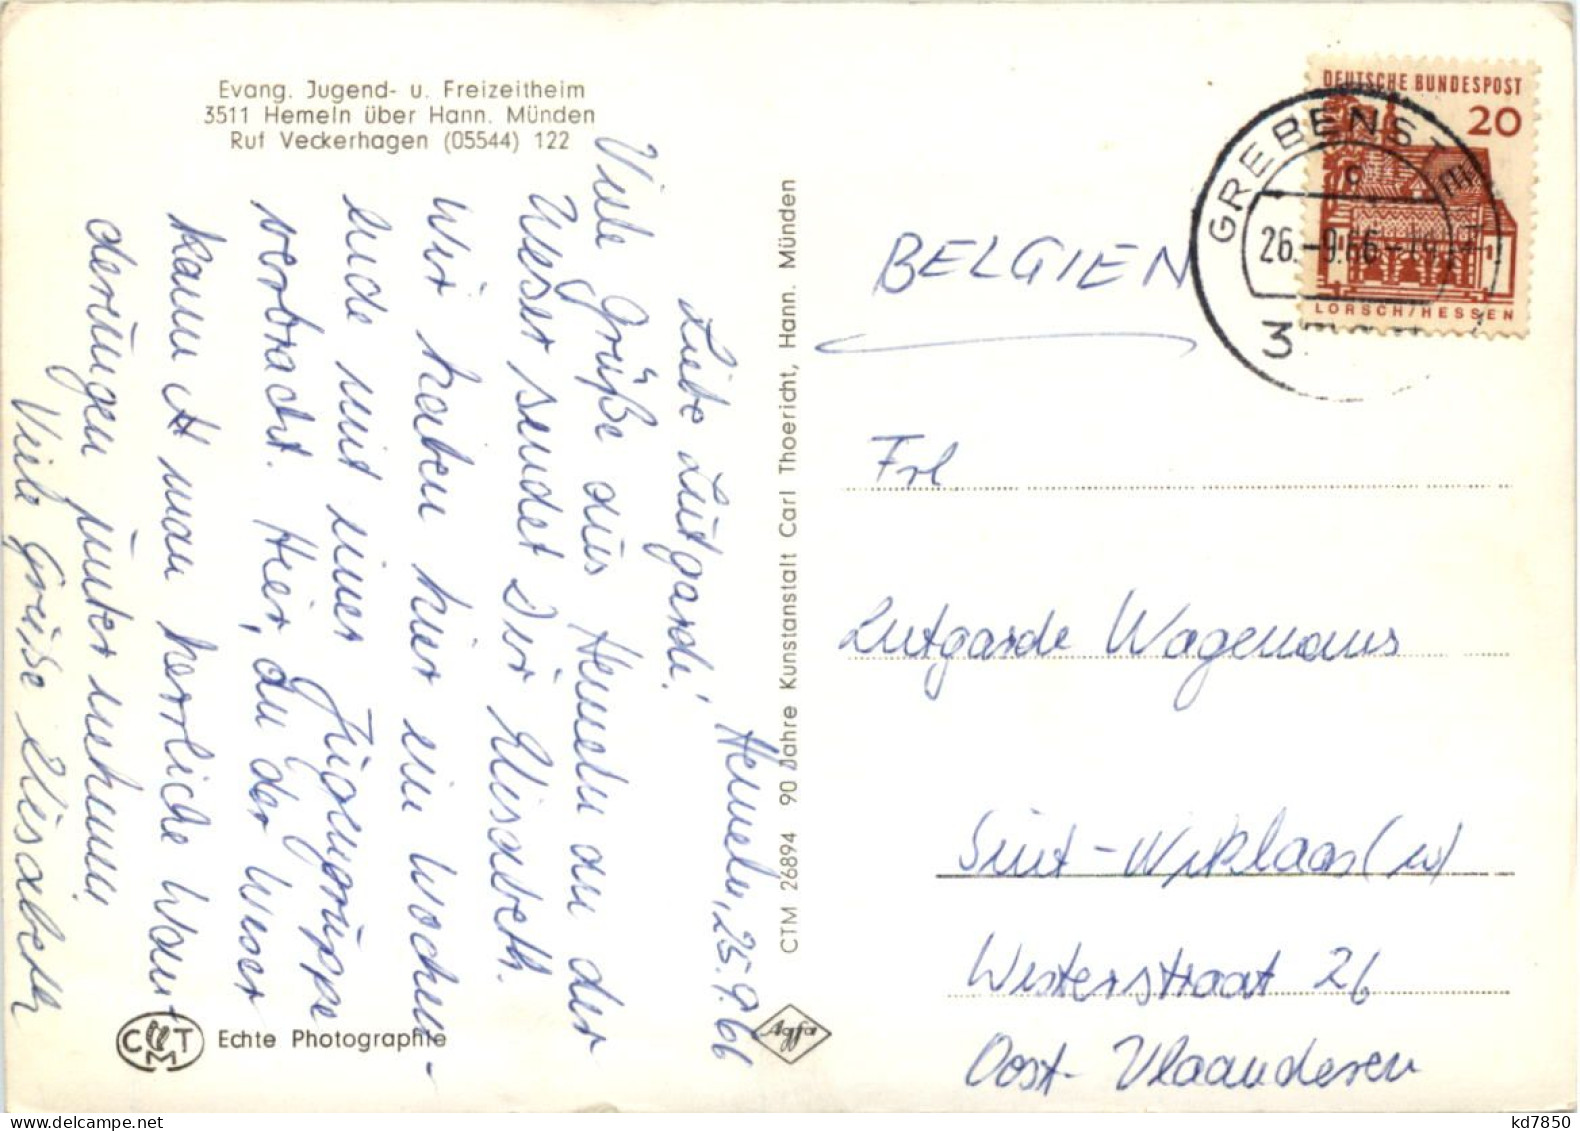 Evang. Jugend- u. Freizeitheim
3511 Hemeln über Hann. Münden
Ruf Veckerhagen (05544) 122
Hemeln, 25.9.66
Liebe Lutgarde!
Viele Grüße aus Hemeln an der
Weser sendet Dir Elisabeth.
Wir haben hier ein Wochen-
ende mit einer Jugendgruppe
verbracht. Hier, an der Weser
kann man herrliche Wan-
derungen unternehmen.
Viele Grüße Elisabeth
CMT Echte Photographie
CTM 26894 90 Jahre Kunstanstalt Carl Thoericht, Hann. Münden
Agfa
DEUTSCHE BUNDESPOST
20
LORSCH/HESSEN
GREBENSTEIN
26.-9.66-19
BELGIEN
Frl
Lutgarde Wagemans
Sint-Niklaas (w)
Westerstraat 26
Oost-Vlaanderen
kd7850